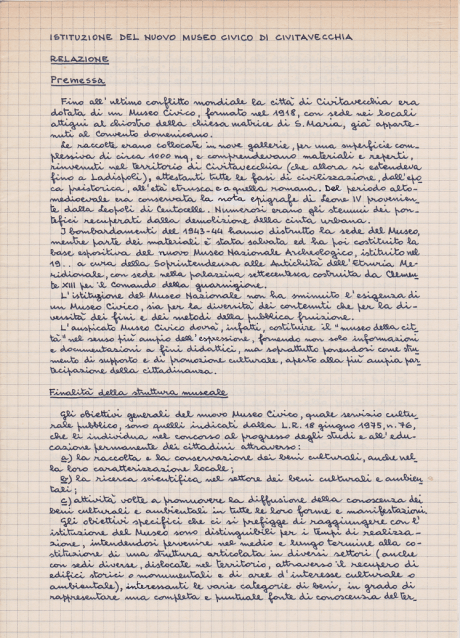 ISTITUZIONE DEL NUOVO MUSEO CIVICO DI CIVITAVECCHIA
RELAZIONE
Premessa
Fino all'ultimo conflitto mondiale la città di Civitavecchia era
dotata di un Museo Civico, formato nel 1918, con sede nei locali
attigui al chiostro della chiesa matrice di S. Maria, già apparte-
nuti al Convento domenicano.
Le raccolte erano collocate in nove gallerie, per una superficie com-
plessiva di circa 1000 mq, e comprendevano materiali e reperti
rinvenuti nel territorio di Civitavecchia (che allora si estendeva
fino a Ladispoli), attestanti tutte le fasi di civilizzazione, dall'epo
ca preistorica, all'età etrusca e a quella romana. Del periodo alto-
medioevale era conservata la nota epigrafe di Leone IV provenien-
te dalla Leopoli di Centocelle. Numerosi erano gli stemmi dei pon-
tifici recuperati dalla demolizione della cinta urbana.
I bombardamenti del 1943-44 hanno distrutto la sede del Museo,
mentre parte dei materiali è stata salvata ed ha poi costituito la
base espositiva del nuovo Museo Nazionale Archeologico, istituito nel
19.. a cura della Soprintendenza alle Antichità dell'Etruria Me-
ridionale, con sede nella palazzina settecentesca costruita da Clemen
te XIII per il comando della guarnigione.
L'istituzione del Museo Nazionale non ha sminuito l'esigenza di
un Museo Civico, sia per le diversità dei contenuti che per la di-
versità dei fini e dei metodi della pubblica fruizione.
L'auspicato Museo Civico dovrà, infatti, costituire il "museo della cit
tà" nel senso più ampio dell'espressione, fornendo non solo informazioni
e documentazioni a fini didattici, ma soprattutto ponendosi come stru
mento di supporto e di promozione culturale, aperto alla più ampia par
tecipazione della cittadinanza.
Finalità della struttura museale
Gli obiettivi generali del nuovo Museo Civico, quale servizio cultu-
rale pubblico, sono quelli indicati dalla L.R. 18 giugno 1975, n. 76,
che li individua nel concorso al progresso degli studi e all'edu-
cazione permanente dei cittadini attraverso:
a) la raccolta e la conservazione dei beni culturali, anche nel-
la loro caratterizzazione locale;
b) la ricerca scientifica nel settore dei beni culturali e ambien
tali;
c) attività volte a promuovere la diffusione della conoscenza dei
beni culturali e ambientali in tutte le loro forme e manifestazioni.
Gli obiettivi specifici che ci si prefigge di raggiungere con l'
istituzione del Museo sono distinguibili per i tempi di realizza-
zione, intendendosi pervenire nel medio e lungo termine alla co-
stituzione di una struttura articolata in diversi settori (anche
con sedi diverse, dislocate nel territorio, attraverso il recupero di
edifici storici o monumentali e di aree d'interesse culturale o
ambientale), interessanti le varie categorie di beni, in grado di
rappresentare una completa e puntuale fonte di conoscenza del ter-